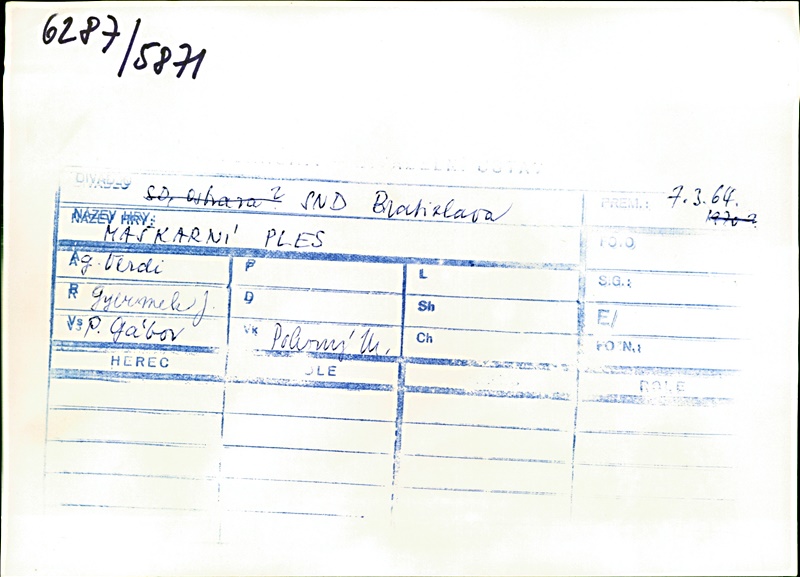 6287/5871
DIVADLO SD, Ostrava? SND Bratislava PREM.: 7.3.64.
NÁZEV HRY: 1970?
MAŠKARNÍ PLES FO.O.
A g. Verdi P L S.G.:
R Gyermek J. D Sh E/
Vs P. Gábor Vk Pokorný M. Ch FO.N.:
HEREC OLE ROLE